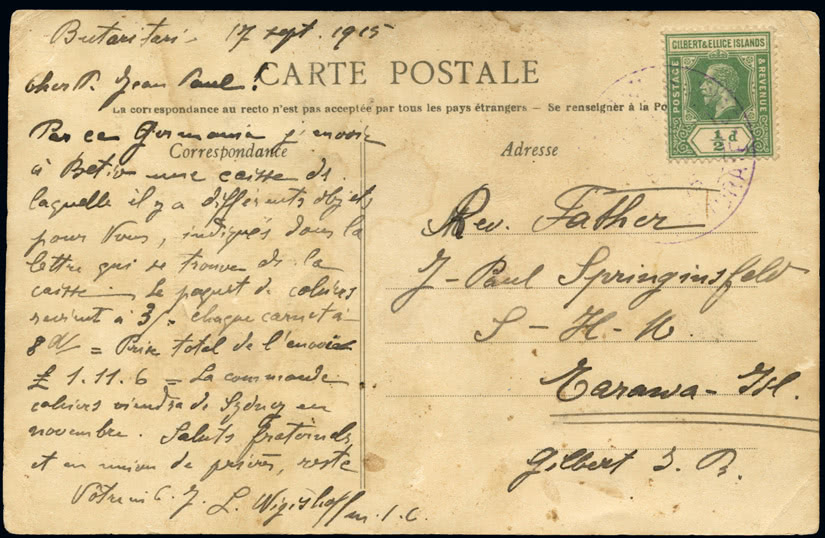 Butaritari 17 sept. 1915
Cher P. Jean Paul!
CARTE POSTALE
La correspondance au recto n'est pas acceptée par tous les pays étrangers - Se renseigner à la Po
Correspondance
Adresse
Par ce Germania j'envoie
à Betio une caisse ds
laquelle il y a différents objets
pour Vous, indiqués dans la
lettre qui se trouve ds la
caisse. Le paquet de cahiers
revient à 3/- chaque carnet à
8d/ = Prix total de l'envoie
£ 1.11.6 = La commande
cahiers viendra de Sydney en
novembre. Saluts fraternels,
et en union de prières, reste
Votre in C. J. L.
m. s. c.
GILBERT & ELLICE ISLANDS
POSTAGE
& REVENUE
½ d
Rev. Father
J-Paul Springinsfeld
S-H-
Tarawa-Isl.
Gilbert